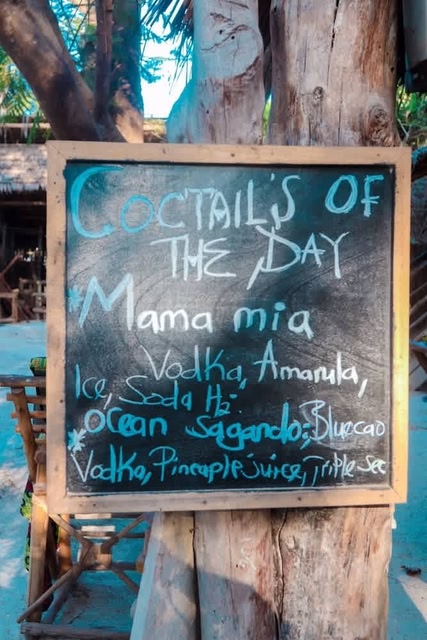 COCTAIL'S OF
THE DAY
* Mama mia
Vodka, Amarula,
Ice, Soda H2-
* Ocean Sagando; Bluecao
Vodka, Pineaple juice, Triple sec